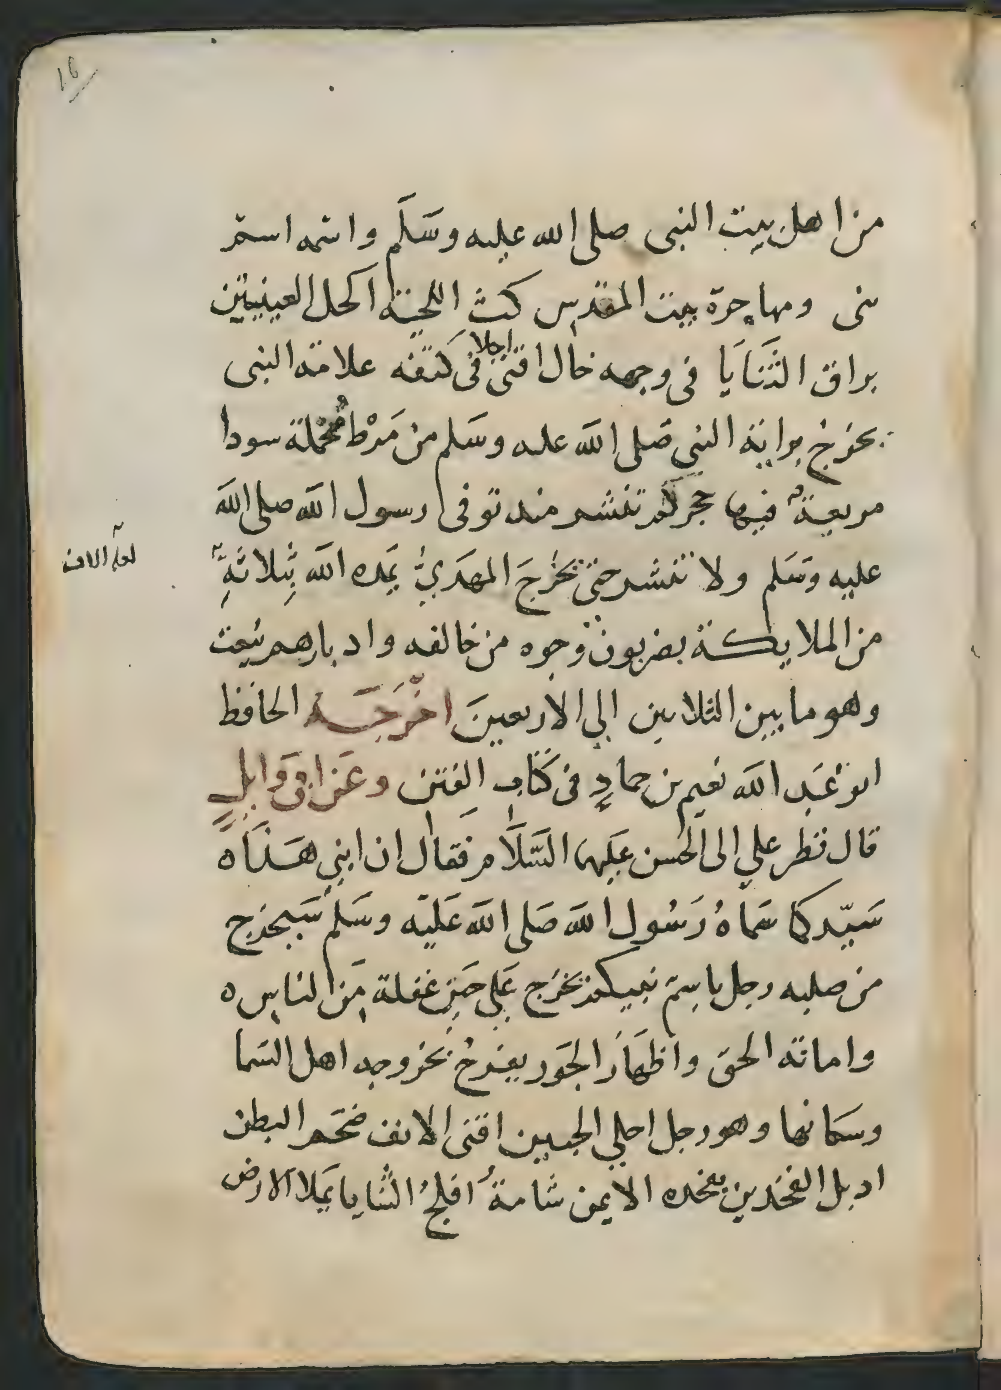 16
من اهل بيت النبى صلى الله عليه وسَلَّم واسمه اسم
نبى ومهاجره بيت المقدس كث اللحية اكحل العينين
براق الثَّنَايَا فى وجهه خال اقنى اجلا فى كتفه علامة النبى
يخرجُ براية النبى صَلى الله عليه وسَلم من مَرْط مُخملة سودا
مربعةٌ فيها حجر لم تنشر منذ توفى رسول الله صلى الله
عليه وَسَلم ولا تنشر حتى يخرُجَ المهدىُّ يمده الله بِثلاثةِ
لعله الاف
من الملايكة يضربون وجوه من خالفه وادبارهم يبعث
وهو ما بين الثلاثين الى الاربعينَ اخْرَجَه الحافظ
ابو عَبد الله نعيم بن حمادٍ فى كتاب الفتن وعَن ابى وَايلٍ
قال نظر علي الى الحسن عليهما السَّلَام فقال ان ابنى هَذَا ه
سَيّد كما سَماهُ رَسُول الله صَلى الله عَليْه وسَلم سَيخرج
من صلبه رجل باسم نبيكم يخرج عَلى حين غفلة مَن الناس ه
واماتة الحق واظهَار الجَور يفرحُ بخروجه اهل السَما
وسكانها وهو رجل اجلي الجبين اقنى الانف ضخم البطن
ادبل الفخذين بفخده الايمن شامةٌ افلجُ الثنايا يَملا الارض